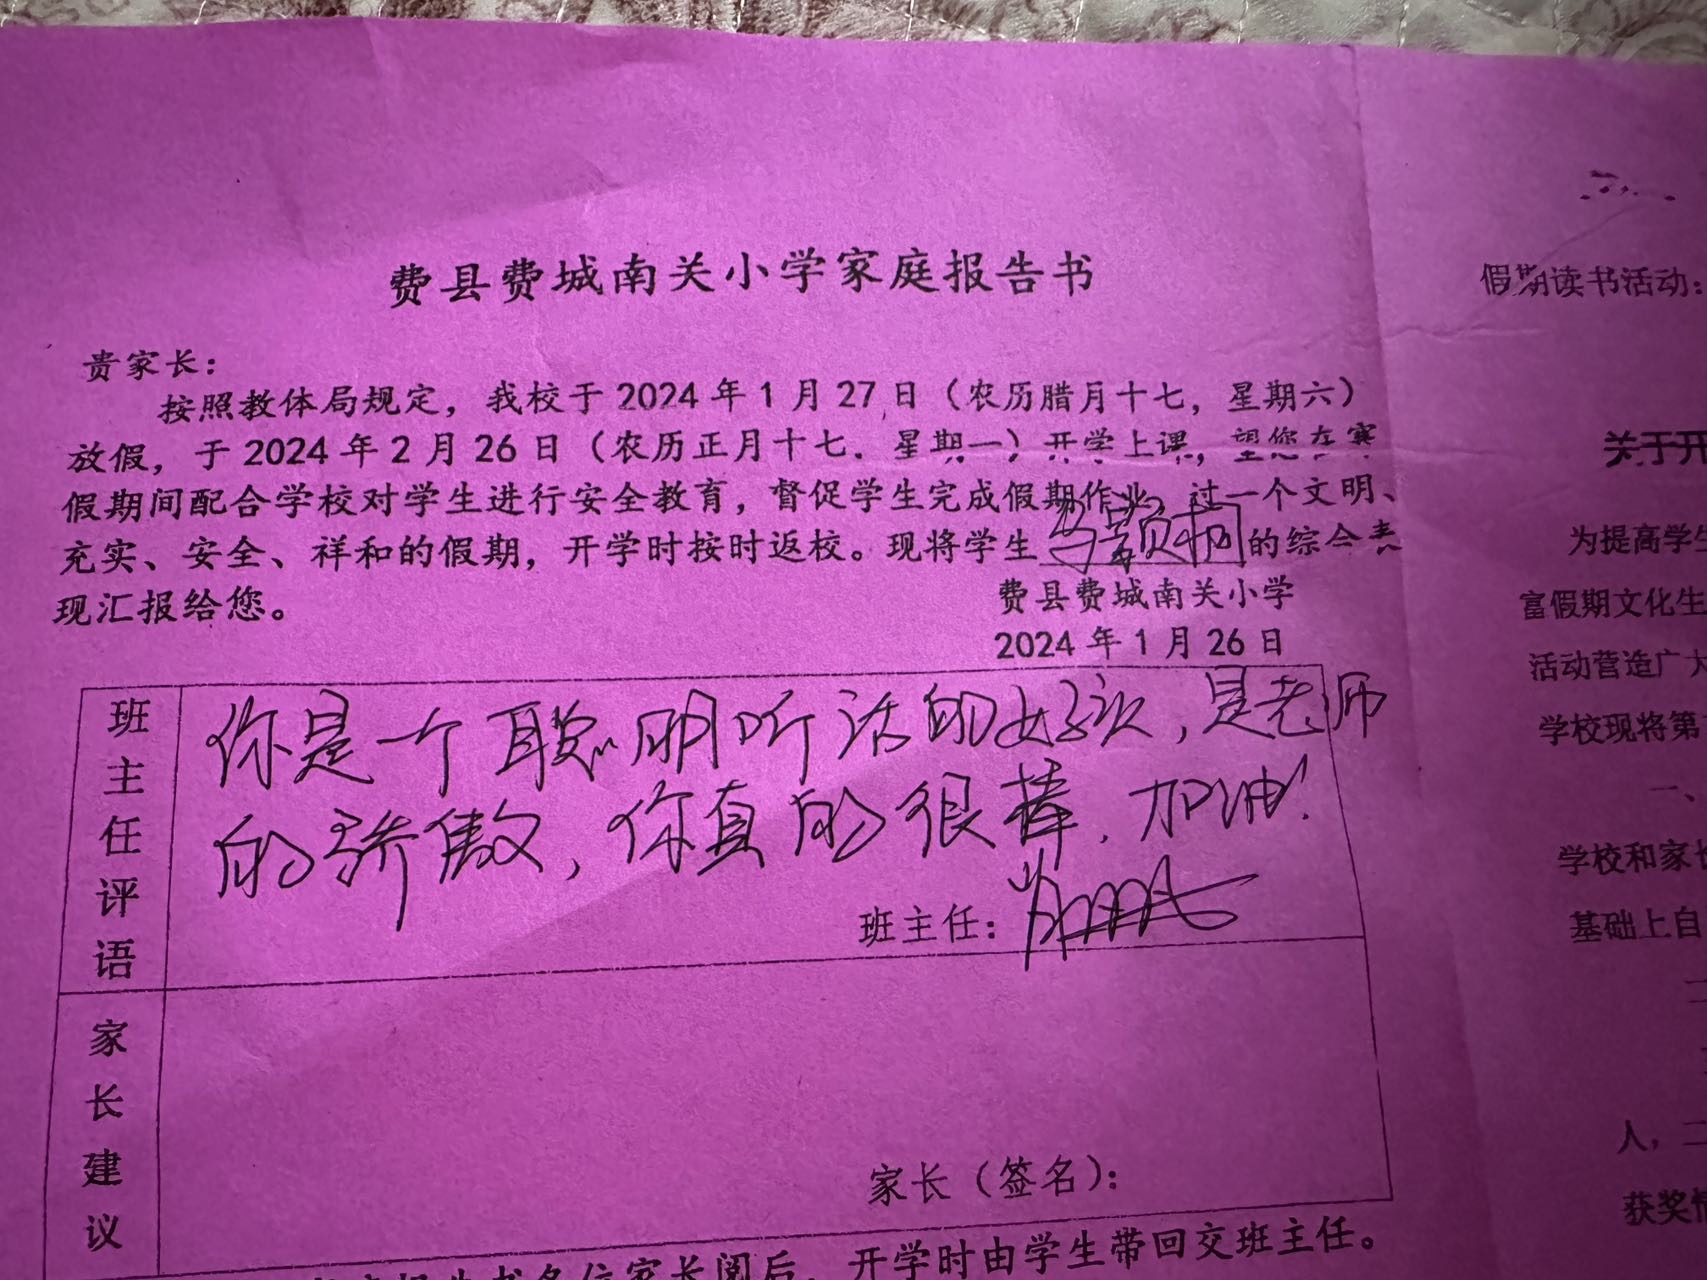 费县费城南关小学家庭报告书
贵家长：
按照教体局规定，我校于 2024 年 1 月 27 日（农历腊月十七，星期六）
放假，于 2024 年 2 月 26 日（农历正月十七．星期一）开学上课，望您在寒
假期间配合学校对学生进行安全教育，督促学生完成假期作业，过一个文明、
充实、安全、祥和的假期，开学时按时返校。现将学生 的综合表
现汇报给您。
费县费城南关小学
2024 年 1 月 26 日
班主任评语
你是一个聪明听话的好孩，是老师
的骄傲，你真的很棒，加油！
班主任：
家长建议
家长（签名）：
家长阅后，开学时由学生带回交班主任。
假期读书活动：
关于开
为提高学生
富假期文化生
活动营造广大
学校现将第
一、
学校和家长
基础上自
人，二
获奖情